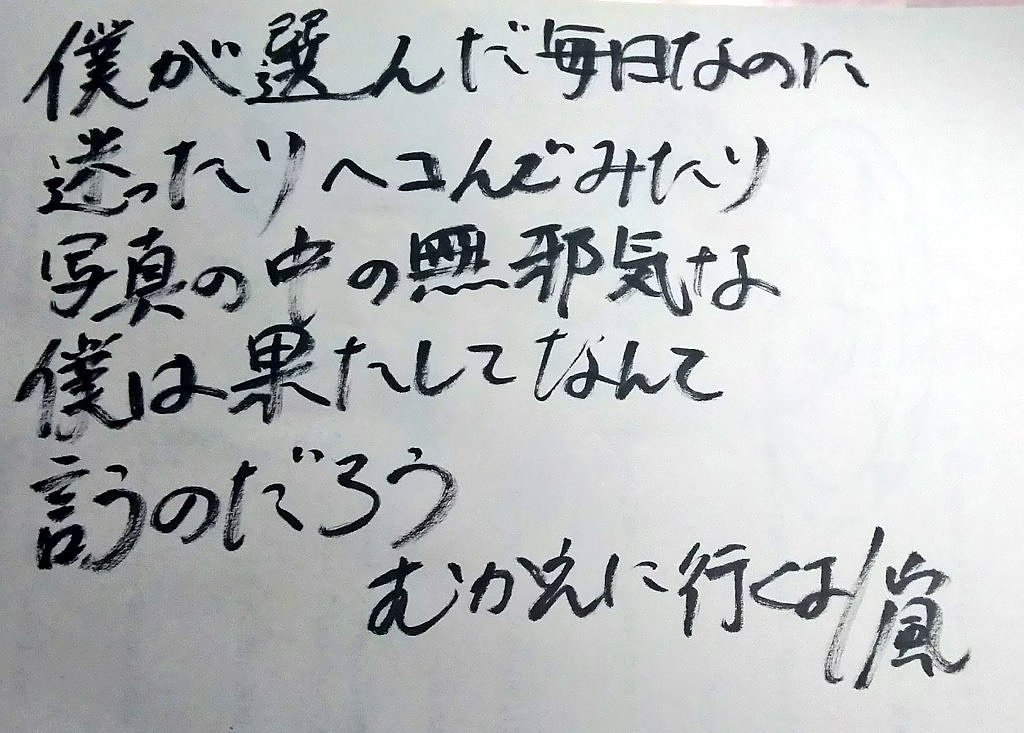 僕が選んだ毎日なのに
迷ったりヘコんでみたり
写真の中の無邪気な
僕は果たしてなんて
言うのだろう
むかえに行くよ/嵐